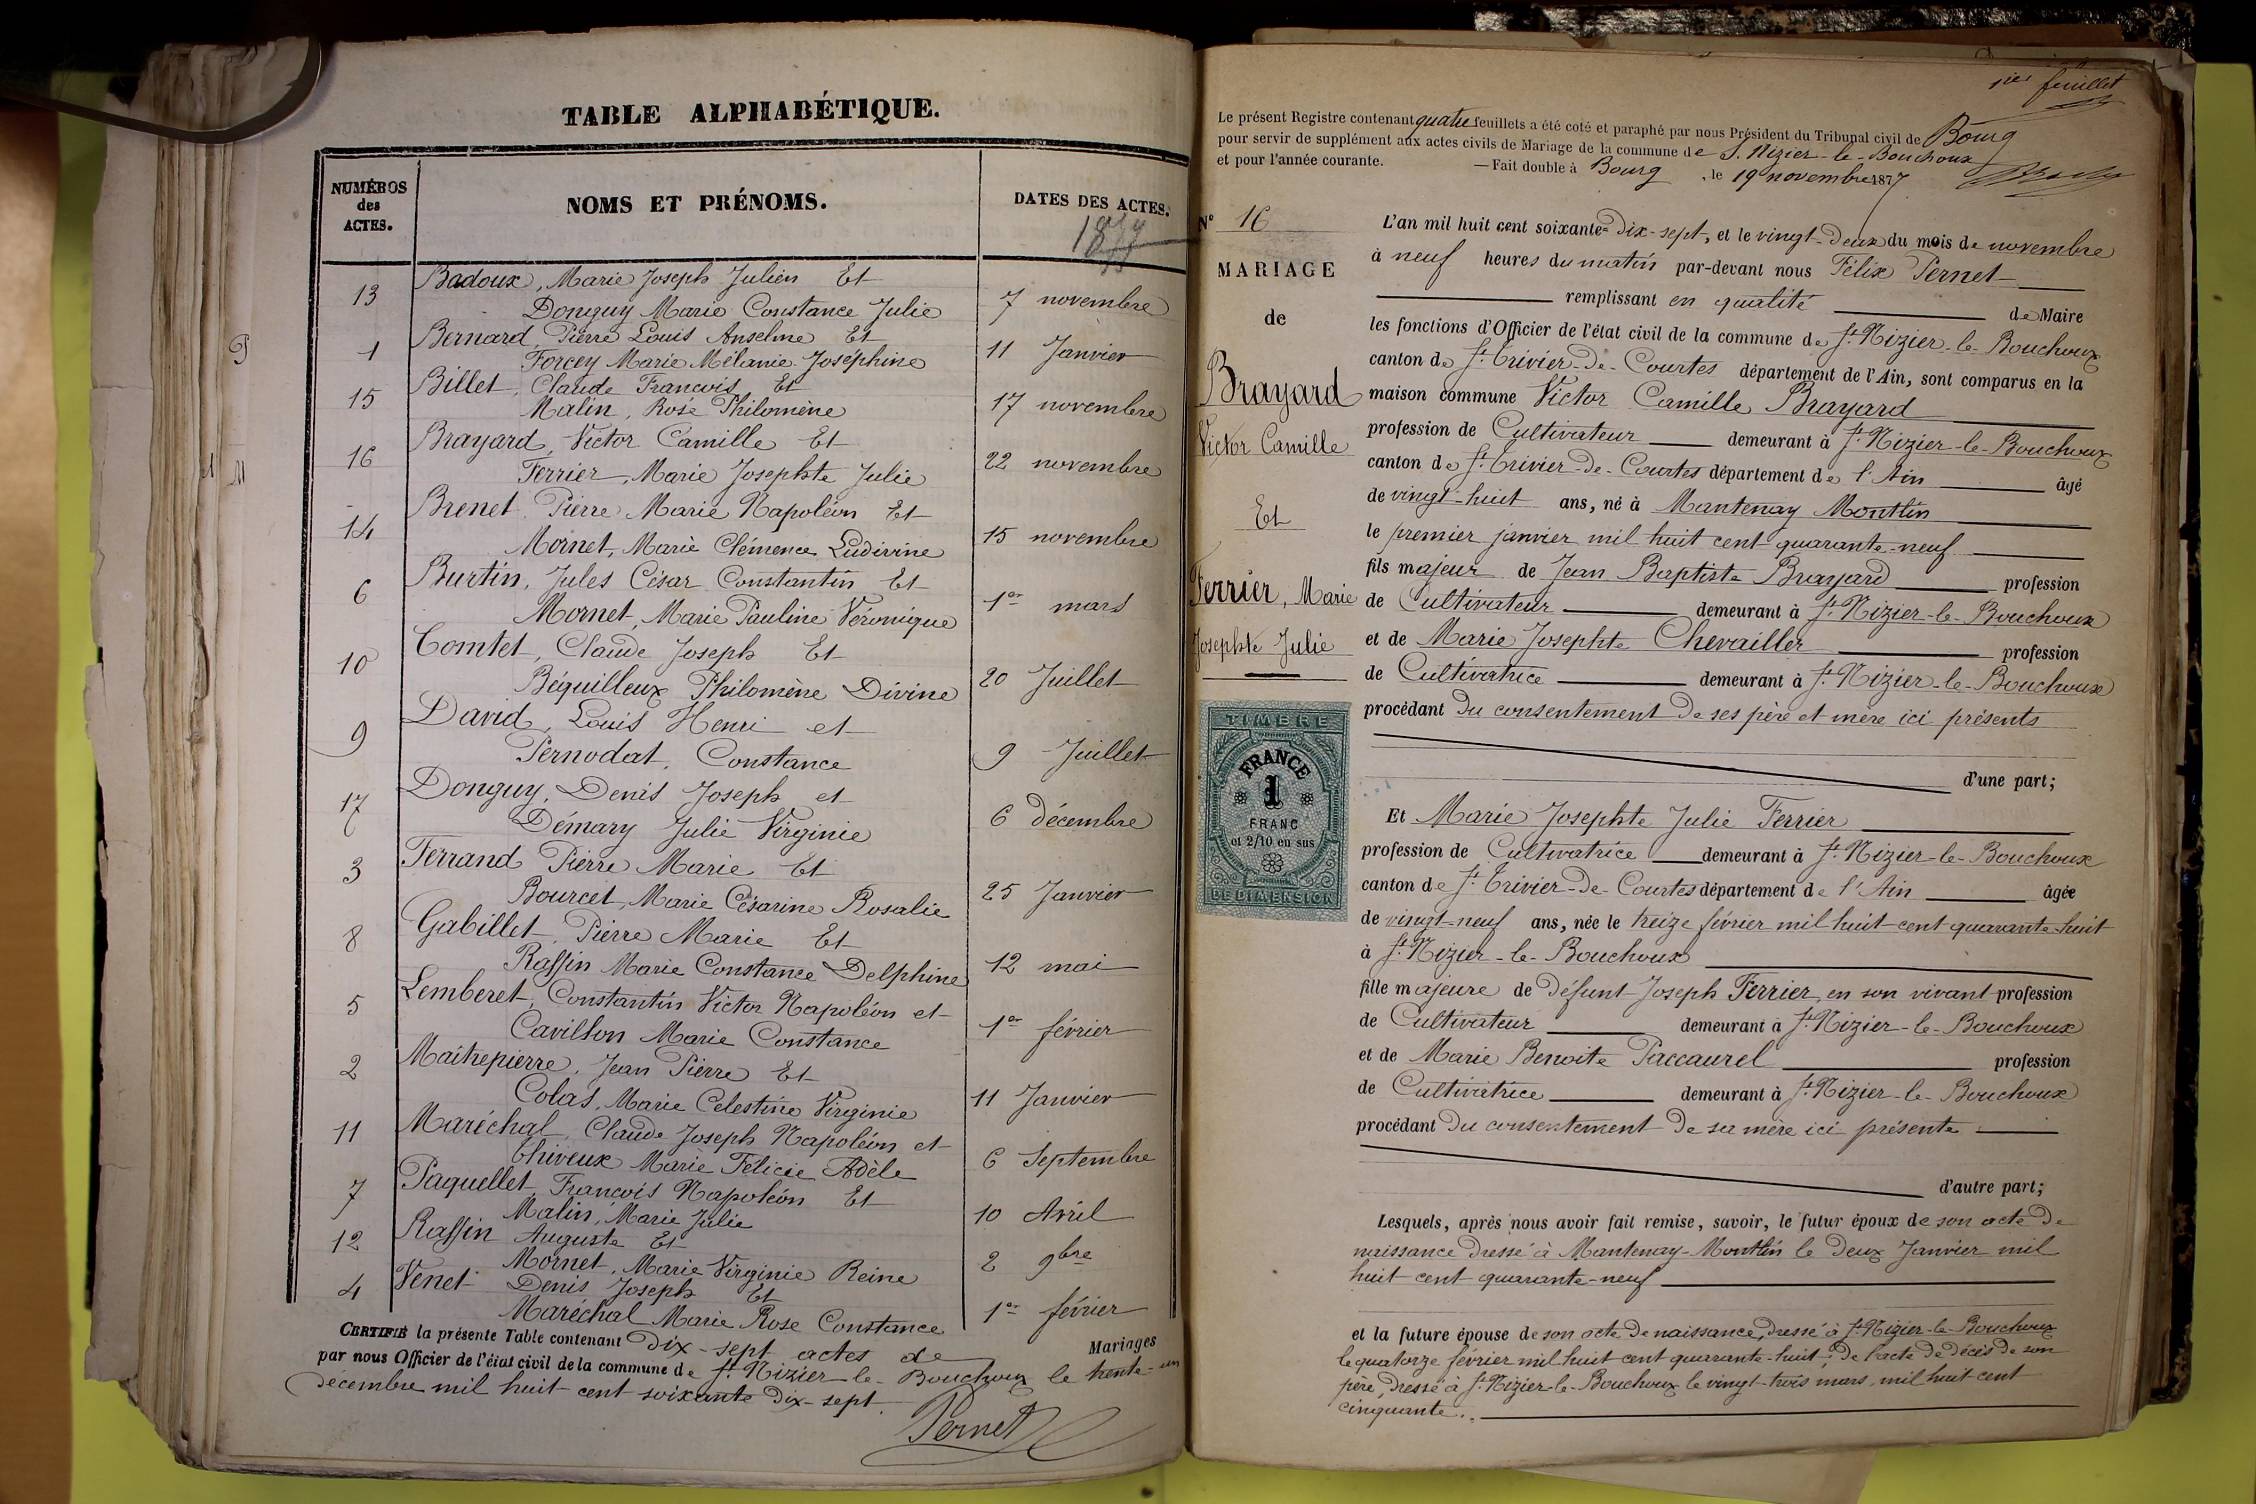 TABLE ALPHABÉTIQUE.
NUMÉROS des ACTES.
NOMS ET PRÉNOMS.
DATES DES ACTES.
Badoux, Marie Joseph Julien Et
13 Donguy Marie Constance Julie 7 novembre
Bernard, Pierre Louis Anselme Et
1 Forcey Marie Mélanie Joséphine 11 Janvier
Billet, Claude François Et
15 Malin, Rose Philomène 17 novembre
Brayard, Victor Camille Et
16 Ferrier, Marie Josephte Julie 22 novembre
Brenet Pierre Marie Napoléon Et
14 Mornet, Marie Clémence Ludivine 15 novembre
Burtin, Jules César Constantin Et
6 Mornet, Marie Pauline Véronique 1er mars
Comtet, Claude Joseph Et
10 Béquilleux Philomène Divine 20 Juillet
David, Louis Henri et
9 Pernodat, Constance 9 Juillet
Donguy, Denis Joseph et
17 Démary Julie Virginie 6 décembre
Ferrand Pierre Marie Et
3 Bourcet, Marie Césarine Rosalie 25 Janvier
Gabillet, Pierre Marie Et
8 Raffin Marie Constance Delphine 12 mai
Lemberet, Constantin Victor Napoléon et
5 Cavillon Marie Constance 1er février
Maîtrepierre, Jean Pierre Et
2 Colas, Marie Celestine Virginie 11 Janvier
Maréchal, Claude Joseph Napoléon et
11 Chiveux Marie Félicie Adèle 6 Septembre
Paquellet, François Napoléon Et
7 Malin, Marie Julie 10 Avril
Raffin Auguste Et
12 Mornet, Marie Virginie Reine 2 9bre
Venet Denis Joseph Et
4 Maréchal Marie Rose Constance 1er février
CERTIFIÉ la présente Table contenant Dix-sept actes de Mariages
par nous Officier de l'état civil de la commune de St. Nizier-le-Bouchoux le trente-un
décembre mil huit cent soixante Dix-sept.
Pernet
P
1 M
1er feuillet
Le présent Registre contenant quatre feuillets a été coté et paraphé par nous Président du Tribunal civil de Bourg
pour servir de supplément aux actes civils de Mariage de la commune de S. Nizier-le-Bouchoux
et pour l'année courante. — Fait double à Bourg, le 19 novembre 1877
N° 16
MARIAGE
de
Brayard
Victor Camille
Et
Ferrier, Marie
Josephte Julie
TIMBRE
FRANCE
1
FRANC
et 2/10 en sus
DE DIMENSION
L'an mil huit cent soixante-Dix-sept, et le vingt-Deux du mois de novembre
à neuf heures du matin par-devant nous Félix Pernet
remplissant en qualité de Maire
les fonctions d'Officier de l'état civil de la commune de St. Nizier-le-Bouchoux
canton de St. Trivier-de-Courtes département de l'Ain, sont comparus en la
maison commune Victor Camille Brayard
profession de Cultivateur demeurant à St. Nizier-le-Bouchoux
canton de St. Trivier-de-Courtes département de l'Ain âgé
de vingt-huit ans, né à Mantenay Montlin
le premier janvier mil huit cent quarante-neuf
fils majeur de Jean Baptiste Brayard profession
de Cultivateur demeurant à St. Nizier-le-Bouchoux
et de Marie Josephte Chevailler profession
de Cultivatrice demeurant à St. Nizier-le-Bouchoux
procédant Du consentement De ses père et mère ici présents
d'une part;
Et Marie Josephte Julie Ferrier
profession de Cultivatrice demeurant à St. Nizier-le-Bouchoux
canton de St. Trivier-de-Courtes département de l'Ain âgée
de vingt-neuf ans, née le treize février mil huit cent quarante-huit
à St. Nizier-le-Bouchoux
fille majeure de Défunt Joseph Ferrier, en son vivant profession
de Cultivateur demeurant à St. Nizier-le-Bouchoux
et de Marie Benoite Paccaurel profession
de Cultivatrice demeurant à St. Nizier-le-Bouchoux
procédant Du consentement De sa mère ici présente
d'autre part;
Lesquels, après nous avoir fait remise, savoir, le futur époux de son acte De
naissance Dressé à Mantenay-Montlin le Deux Janvier mil
huit cent quarante-neuf
et la future épouse de son acte De naissance, Dressé à St. Nizier-le-Bouchoux
le quatorze février mil huit cent quarante-huit, De l'acte De Décès De son
père, Dressé à St. Nizier-le-Bouchoux le vingt-trois mars mil huit cent
cinquante.